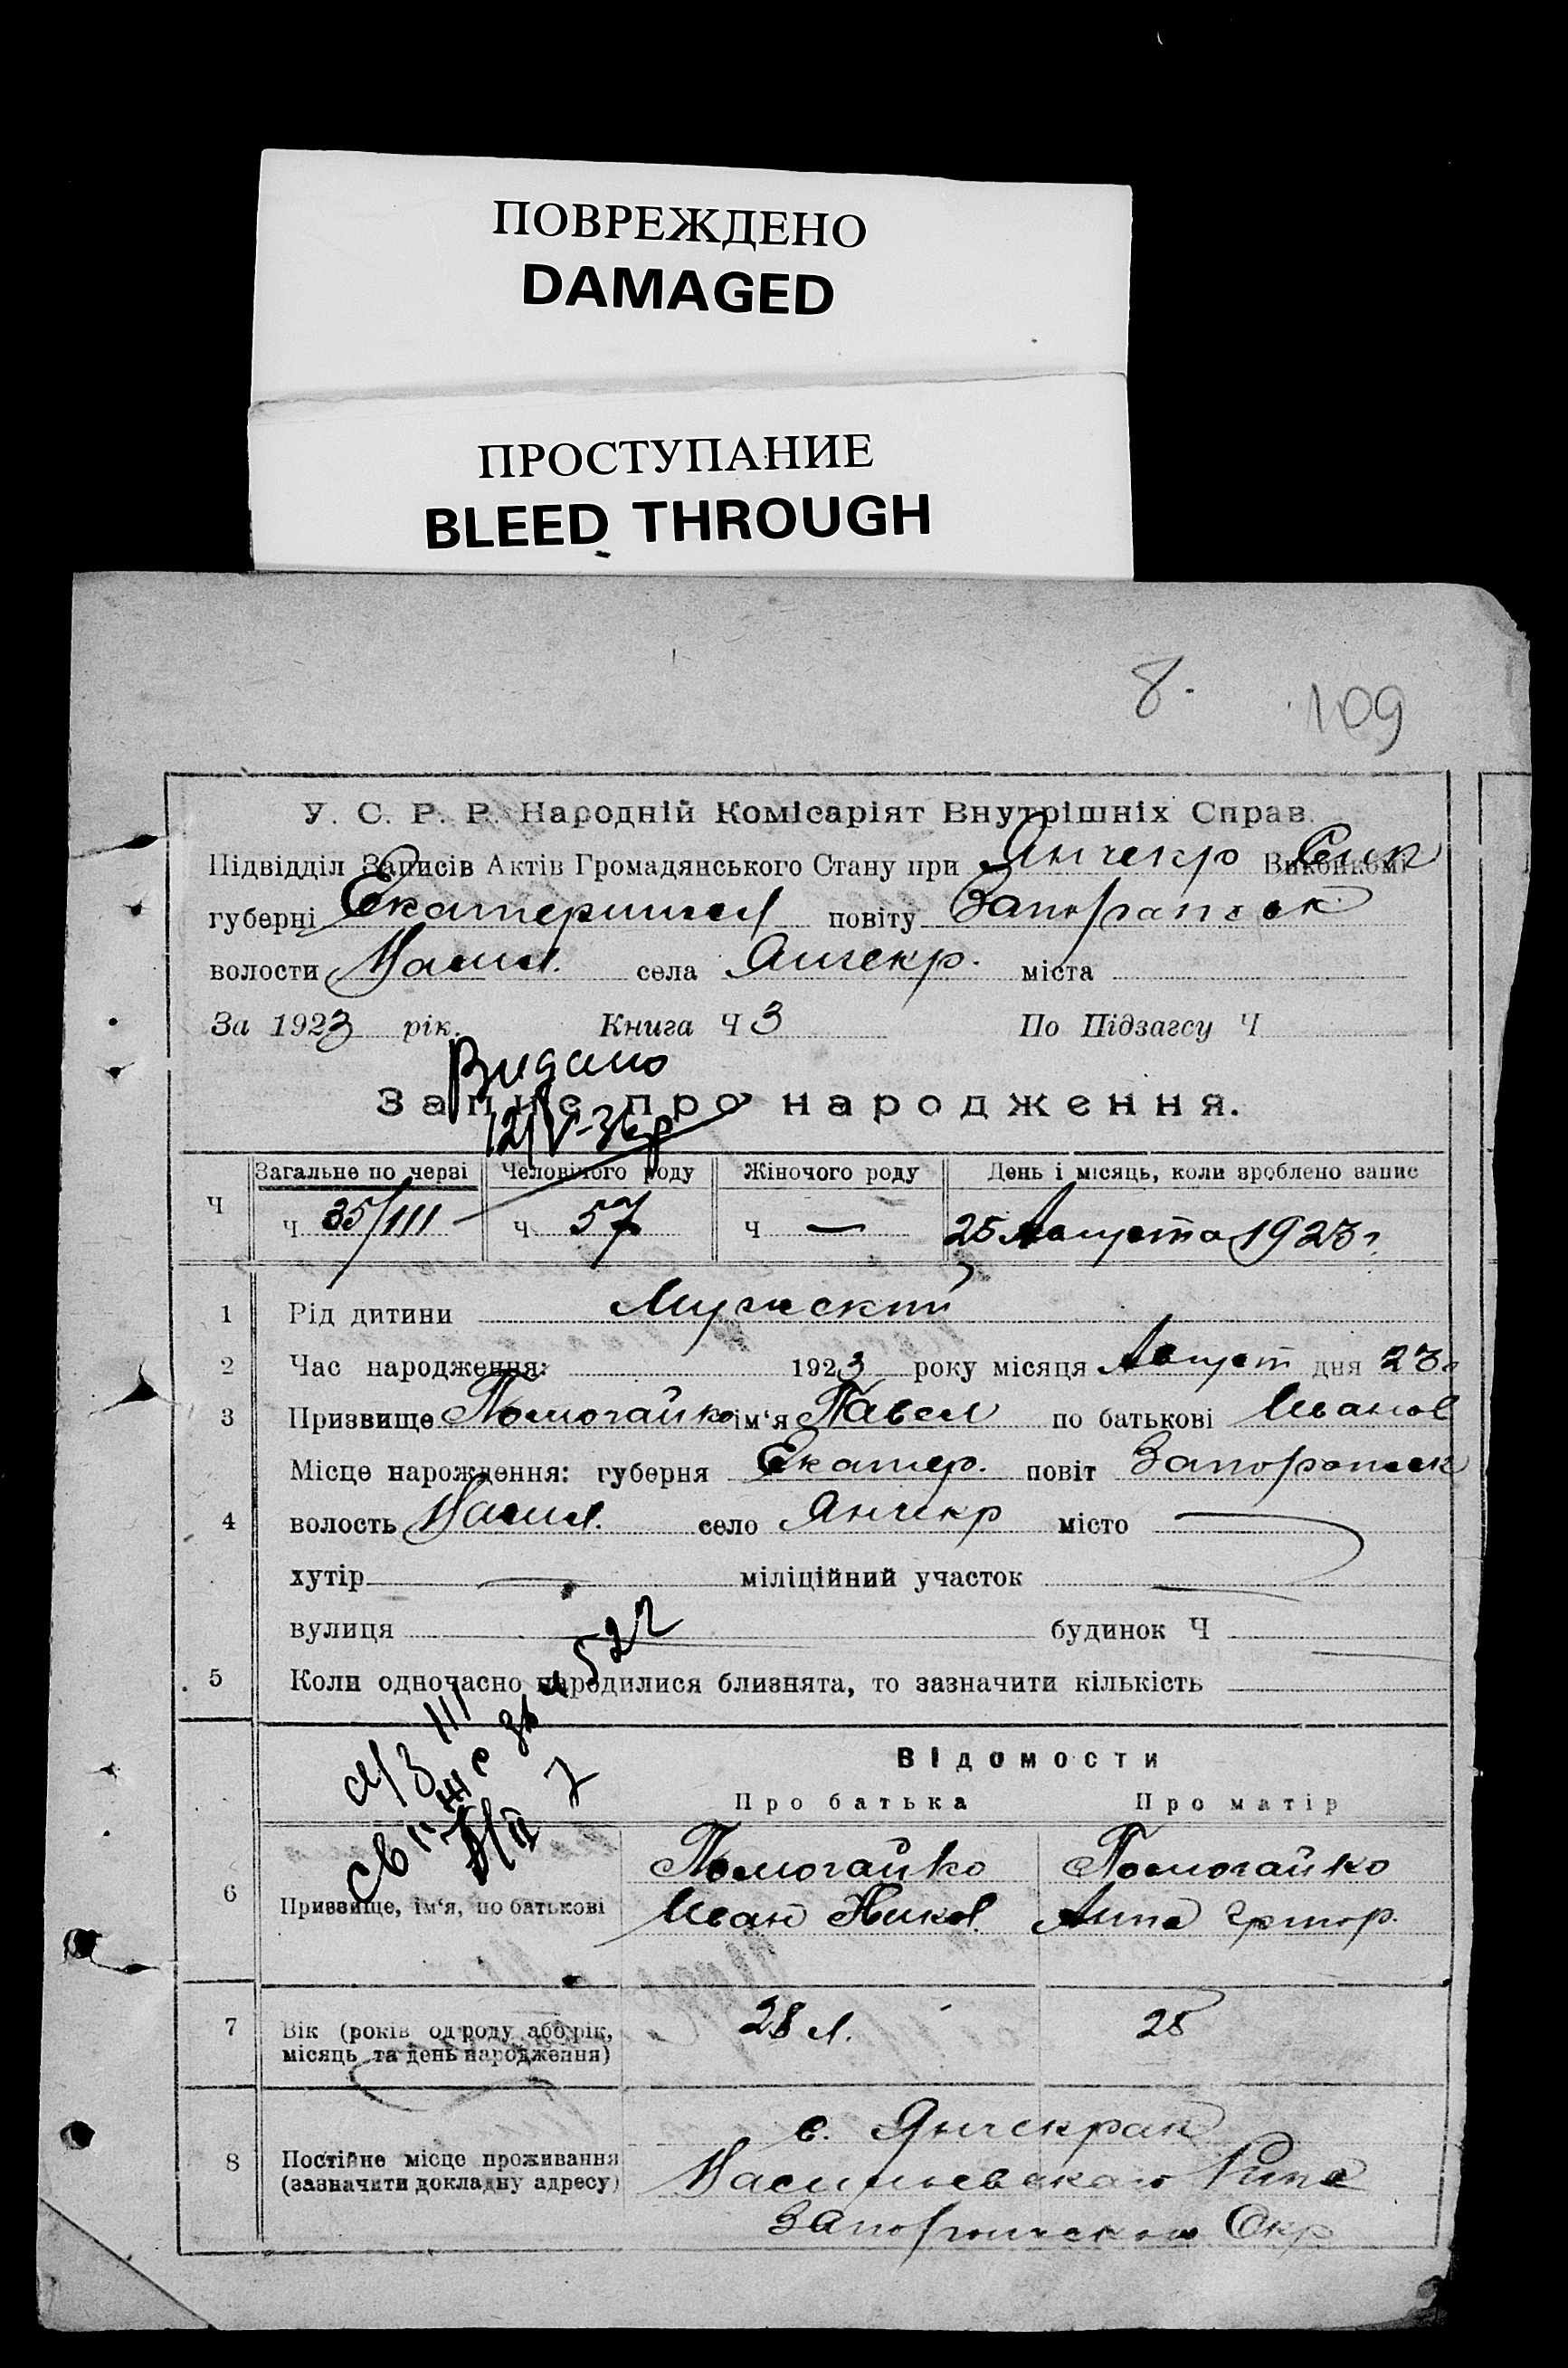 ПОВРЕЖДЕНО
DAMAGED
ПРОСТУПАНИЕ
BLEED THROUGH
8. 109
У. С. Р. Р. Народній Комісаріят Внутрішніх Справ.
Підвідділ Записів Актів Громадянського Стану при Янчекр Виконкомі
губерні Екатеринсл повіту Запорожск
волости Васил. села Янчекр. міста
За 1923 рік. Книга Ч 3 По Підзагсу Ч
Видано
Запис про народження.
12/V-36р
Загальне по черзі Человічого роду Жіночого роду День і місяць, коли зроблено запис
Ч Ч 35/111 Ч 57 Ч — 25 Августа 1923 г.
1 Рід дитини Мужский
2 Час народження: 1923 року місяця Август дня 23 г
3 Призвище Помогайко ім‘я Павел по батькові Иванов
Місце нарождення: губерня Екатер. повіт Запорожск
4 волость Васил. село Янчекр місто
хутір — міліційний участок
вулиця будинок Ч
5 Коли одночасно народилися близнята, то зазначити кількість
Відомости
Про батька Про матір
Помогайко Помогайко
6 Призвище, ім‘я, по батькові Иван Никол. Анна Григор.
7 Вік (років од роду або рік, 28 л. 28
місяць та день народження)
с. Янчекрак
8 Постійне місце проживання Васильевского Рина
(зазначити докладну адресу)
Запорожского Окр